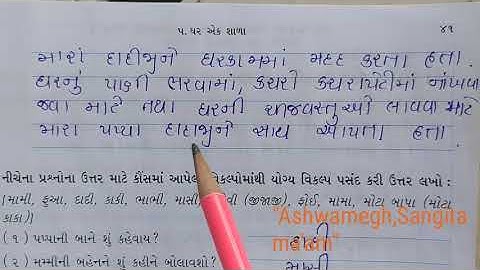 ૫. ઘર એક શાળા ૪૧
મારાં દાદીજીને ઘરકામમાં મદદ કરતા હતા.
ઘરનું પાણી ભરવામાં, કચરો કચરાપેટીમાં નાંખવા
જવા માટે તથા ઘરની ચીજવસ્તુઓ લાવવા માટે
મારા પપ્પા દાદાજીને સાથ આપતા હતા.
નીચેના પ્રશ્નોના ઉત્તર માટે કૌંસમાં આપેલ વિકલ્પોમાંથી યોગ્ય વિકલ્પ પસંદ કરી ઉત્તર લખો :
(મામી, ફૂઆ, દાદી, કાકી, ભાભી, માસી, (જીજાજી), ફોઈ, મામા, મોટા બાપા (મોટા
કાકા))
"Ashwamegh,Sangita
madam"
(૧) પપ્પાની બાને શું કહેવાય? દાદી
(૨) મમ્મીની બહેનને શું કહીને બોલાવશો? માસી